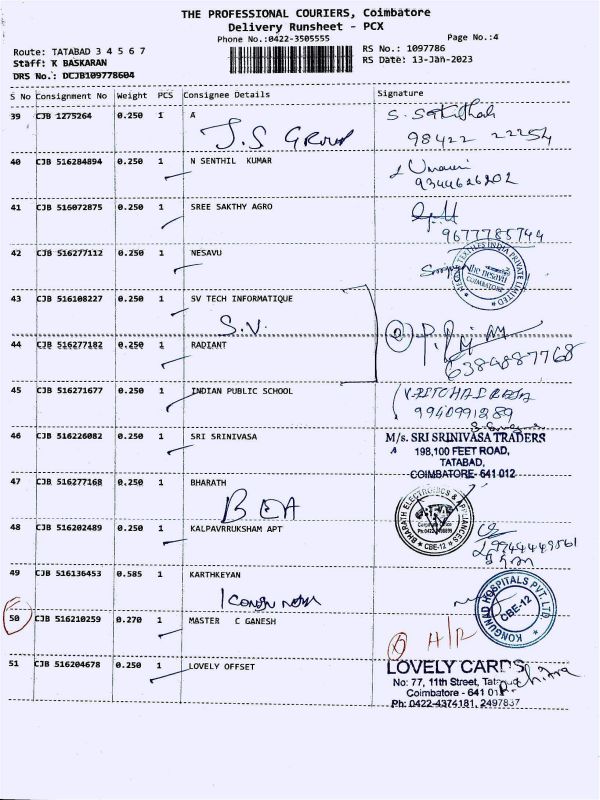 THE PROFESSIONAL COURIERS, Coimbatore
Delivery Runsheet - PCX
Phone No.:0422-3505555
Page No.:4
Route: TATABAD 3 4 5 6 7
RS No.: 1097786
Staff: K BASKARAN
RS Date: 13-Jan-2023
DRS No.: DCJB109778604
S No Consignment No Weight PCS Consignee Details Signature
39 CJB 1275264 0.250 1 A
J.S Group
98422 22254
40 CJB 516284894 0.250 1 N SENTHIL KUMAR
9344626202
41 CJB 516072875 0.250 1 SREE SAKTHY AGRO
9677785744
42 CJB 516277112 0.250 1 NESAVU
TEXTILES INDIA PRIVATE LIMITED
the nesavu
COIMBATORE
43 CJB 516108227 0.250 1 SV TECH INFORMATIQUE
S.V.
44 CJB 516277182 0.250 1 RADIANT
6384887768
45 CJB 516271677 0.250 1 INDIAN PUBLIC SCHOOL
9940991289
46 CJB 516226082 0.250 1 SRI SRINIVASA
M/s. SRI SRINIVASA TRADERS
198,100 FEET ROAD,
TATABAD,
COIMBATORE- 641 012
47 CJB 516277168 0.250 1 BHARATH
BEA
BHARATH ELECTRONICS & APPLIANCES
CBE-12
48 CJB 516202489 0.250 1 KALPAVRRUKSHAM APT
9944449561
49 CJB 516136453 0.585 1 KARTHKEYAN
KONGUNAD HOSPITALS PVT. LTD.
CBE-12
50 CJB 516210259 0.270 1 MASTER C GANESH
51 CJB 516204678 0.250 1 LOVELY OFFSET
LOVELY CARDS
No: 77, 11th Street,
Coimbatore - 641 012
Ph: 0422-4374181, 2497837